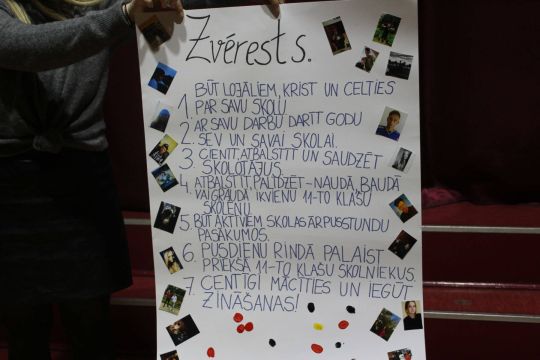 Zvērests.
BŪT LOJĀLIEM, KRIST UN CELTIES
1. PAR SAVU SKOLU
AR SAVU DARBU DARĪT GODU
2. SEV UN SAVAI SKOLAI.
3. CIENĪT, ATBALSTĪT UN SAUDZĒT
SKOLOTĀJUS.
4. ATBALSTĪT, PALĪDZĒT-NAUDĀ, BAUDĀ
VAI GRAUDĀ IKVIENU 11-TO KLAŠU
SKOLĒNU.
5. BŪT AKTĪVIEM SKOLAS ĀRPUSSTUNDU
PASĀKUMOS.
6. PUSDIENU RINDĀ PALAIST
PRIEKŠĀ 11-TO KLAŠU SKOLNIEKUS.
7. CENTĪGI MĀCĪTIES UN IEGŪT
ZINĀŠANAS!